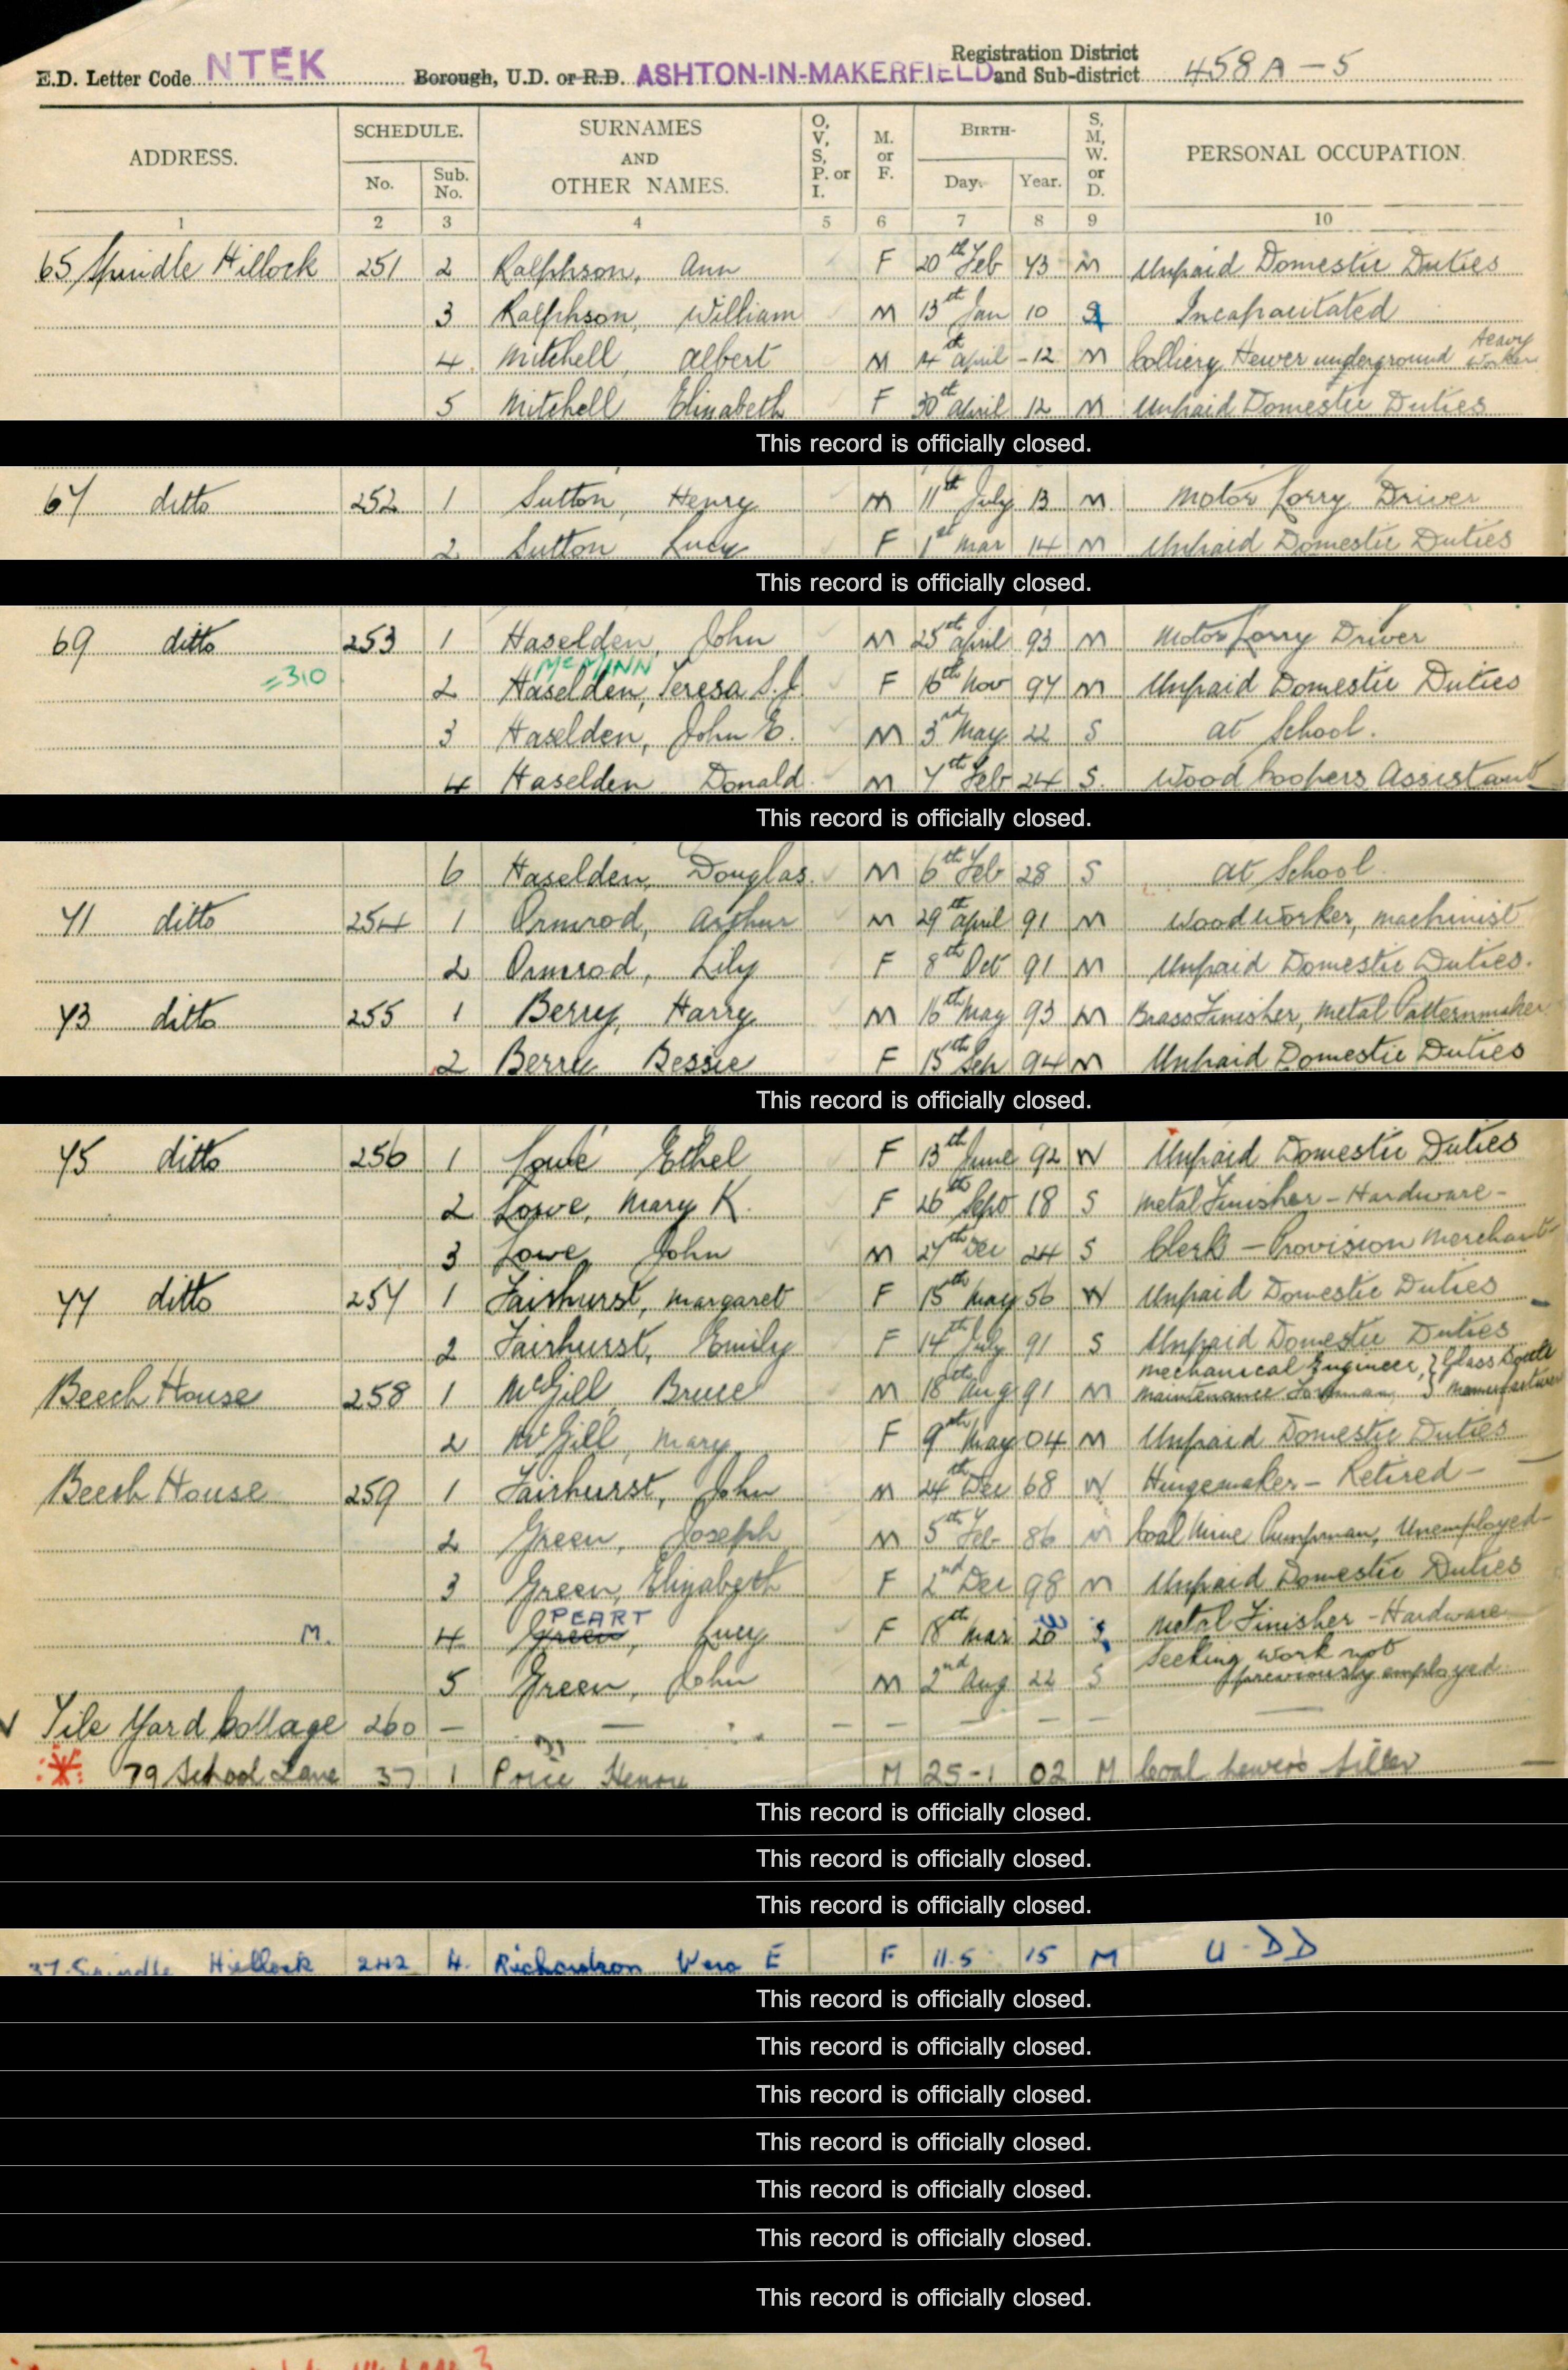 E.D. Letter Code NTEK Borough, U.D. or R.D. ASHTON-IN-MAKERFIELD Registration District and Sub-district 458A-5
ADDRESS. SCHEDULE. No. Sub. No. SURNAMES AND OTHER NAMES. O, V, S, P. or I. M. or F. BIRTH- Day. Year. S, M, W. or D. PERSONAL OCCUPATION.
1 2 3 4 5 6 7 8 9 10
65 Spindle Hillock 251 2 Ralphson, Ann F 20th Feb 73 M Unpaid Domestic Duties
3 Ralphson, William M 13th Jan 10 Incapacitated
4. Mitchell, Albert M 4th April -12 M Colliery Hewer underground Heavy Worker
5 Mitchell Elizabeth F 30th April 12 M Unpaid Domestic Duties
This record is officially closed.
67 ditto 252 1 Sutton, Henry M 11th July 13 M Motor Lorry Driver
2 Sutton Lucy F 1st Mar 14 M Unpaid Domestic Duties
This record is officially closed.
69 ditto 253 1 Haselden, John M 25th April 93 M Motor Lorry Driver
=310 McMINN
2 Haselden, Teresa S.J. F 16th Nov 97 M Unpaid Domestic Duties
3 Haselden, John E. M 3rd May 22 S at School.
4 Haselden Donald M 7th Feb 24 S. Wood Coopers Assistant
This record is officially closed.
6 Haselden, Douglas. M 6th Feb 28 S at School
71 ditto 254 1 Ormrod, Arthur M 29th April 91 M Woodworker, machinist
2 Ormrod, Lily F 8th Oct 91 M Unpaid Domestic Duties.
73 ditto 255 1 Berry, Harry M 16th May 93 M Brass Finisher, Metal Patternmaker
2 Berry Bessie F 15th Sep 94 M Unpaid Domestic Duties
This record is officially closed.
75 ditto 256 1 Lowe Ethel F 13th June 92 W Unpaid Domestic Duties
2 Lowe, Mary K. F 26th Sept 18 S Metal Finisher - Hardware -
3 Lowe John M 27th Dec 24 S Clerk - Provision Merchant
77 ditto 257 1 Fairhurst, Margaret F 15th May 56 W Unpaid Domestic Duties
2 Fairhurst, Emily F 14th July 91 S Unpaid Domestic Duties
Beech House 258 1 McGill, Bruce M 18th Aug 91 M Mechanical Engineer, Maintenance Foreman } Glass Bottle manufacture
2 McGill, Mary F 9th May 04 M Unpaid Domestic Duties
Beech House 259 1 Fairhurst, John M 24th Dec 68 W Hingemaker - Retired -
2 Green, Joseph M 5th Feb 86 M Coal Mine Pumpman, Unemployed
3 Green, Elizabeth F 2nd Dec 98 M Unpaid Domestic Duties
PEART
M. 4. Green, Lucy F 18th Mar 20 S Metal Finisher - Hardware
5 Green, John M 2nd Aug 22 S Seeking work not previously employed
Tile Yard Cottage 260 - - - - - - -
79 School Lane 37 1 Price Henry M 25-1 02 M Coal hewers filler
This record is officially closed.
This record is officially closed.
This record is officially closed.
37 Spindle Hillock 242 4. Richardson Vera E F 11.5 15 M U.DD
This record is officially closed.
This record is officially closed.
This record is officially closed.
This record is officially closed.
This record is officially closed.
This record is officially closed.
This record is officially closed.